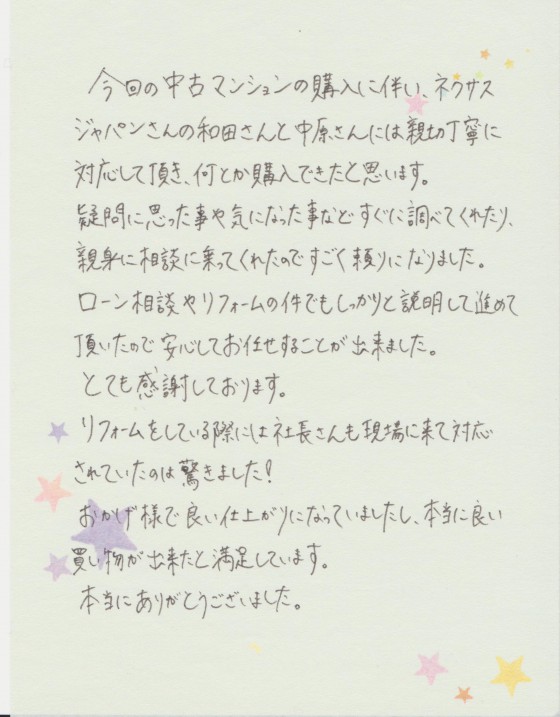 今回の中古マンションの購入に伴い、ネクサス
ジャパンさんの和田さんと中原さんには親切丁寧に
対応して頂き、何とか購入できたと思います。
疑問に思った事や気になった事などすぐに調べてくれたり、
親身に相談に乗ってくれたのですごく頼りになりました。
ローン相談やリフォームの件でもしっかりと説明して進めて
頂いたので安心してお任せすることが出来ました。
とても感謝しております。
リフォームをしている際には社長さんも現場に来て対応
されていたのは驚きました!
おかげ様で良い仕上がりになっていましたし、本当に良い
買い物が出来たと満足しています。
本当にありがとうございました。